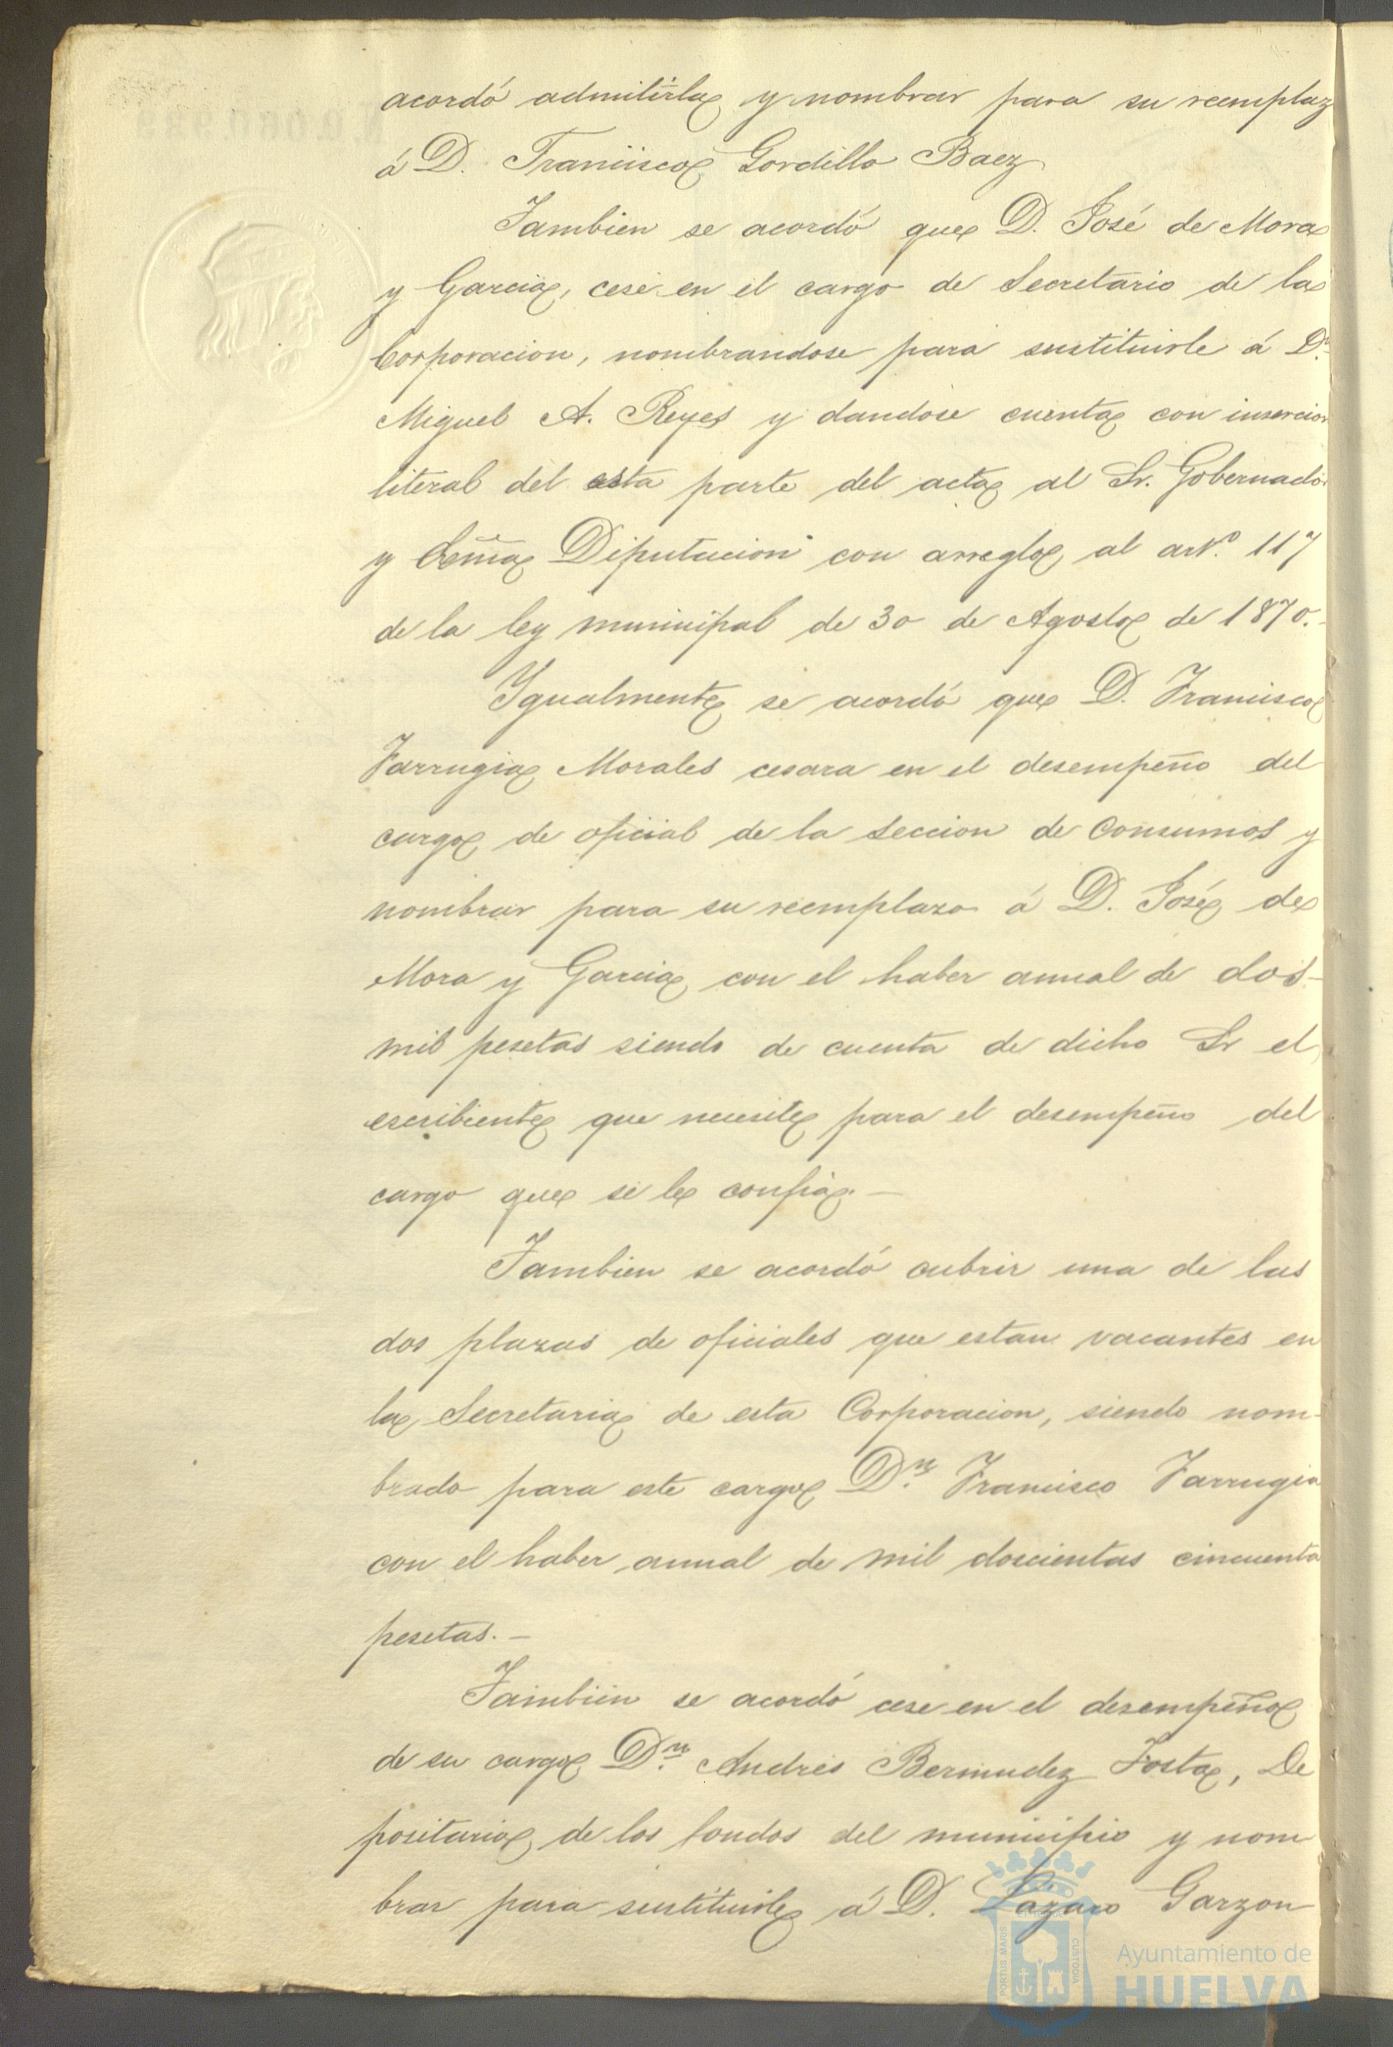 acordó admitirla y nombrar para su reemplaz
á D. Francisco Gordillo Baez
Tambien se acordó que D. José de Mora
y Garcia, cese en el cargo de Secretario de la
Corporacion, nombrandose para sustituirle á D.n
Miguel A. Reyes y dandose cuenta con insercion
literal del esta parte del acta al Sr. Gobernador
y Diputacion con arreglo al art.o 117
de la ley municipal de 30 de Agosto de 1870.-
Ygualmente se acordó que D. Francisco
Farrugia Morales cesara en el desempeño del
cargo de oficial de la seccion de consumos y
nombrar para su reemplazo á D. José de
Mora y Garcia con el haber annal de dos-
mil pesetas siendo de cuenta de dicho Sr el
escribiente que necesite para el desempeño del
cargo que se le confia.-
Tambien se acordó cubrir una de las
dos plazas de oficiales que estan vacantes en
la Secretaria de esta Corporacion, siendo nom-
brado para este cargo D.n Francisco Farrugia
con el haber annal de mil doscientas cincuenta
pesetas.-
Tambien se acordó cese en el desempeño
de su cargo D.n Andres Bermudez Tosta, De
positario de los fondos del municipio y nom
brar para sustituirle á D. Lázaro Garzon
PORTUS MARIS CUSTODIA
Ayuntamiento de
HUELVA